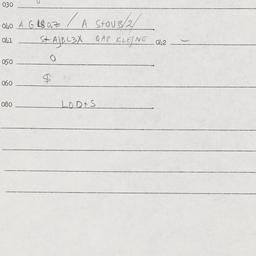 030
040 A G L8OZ / A StOVB/2/
041 St AJBL3X GAP KLEJNG 042 –
050 O
060 $
080 LOD+S